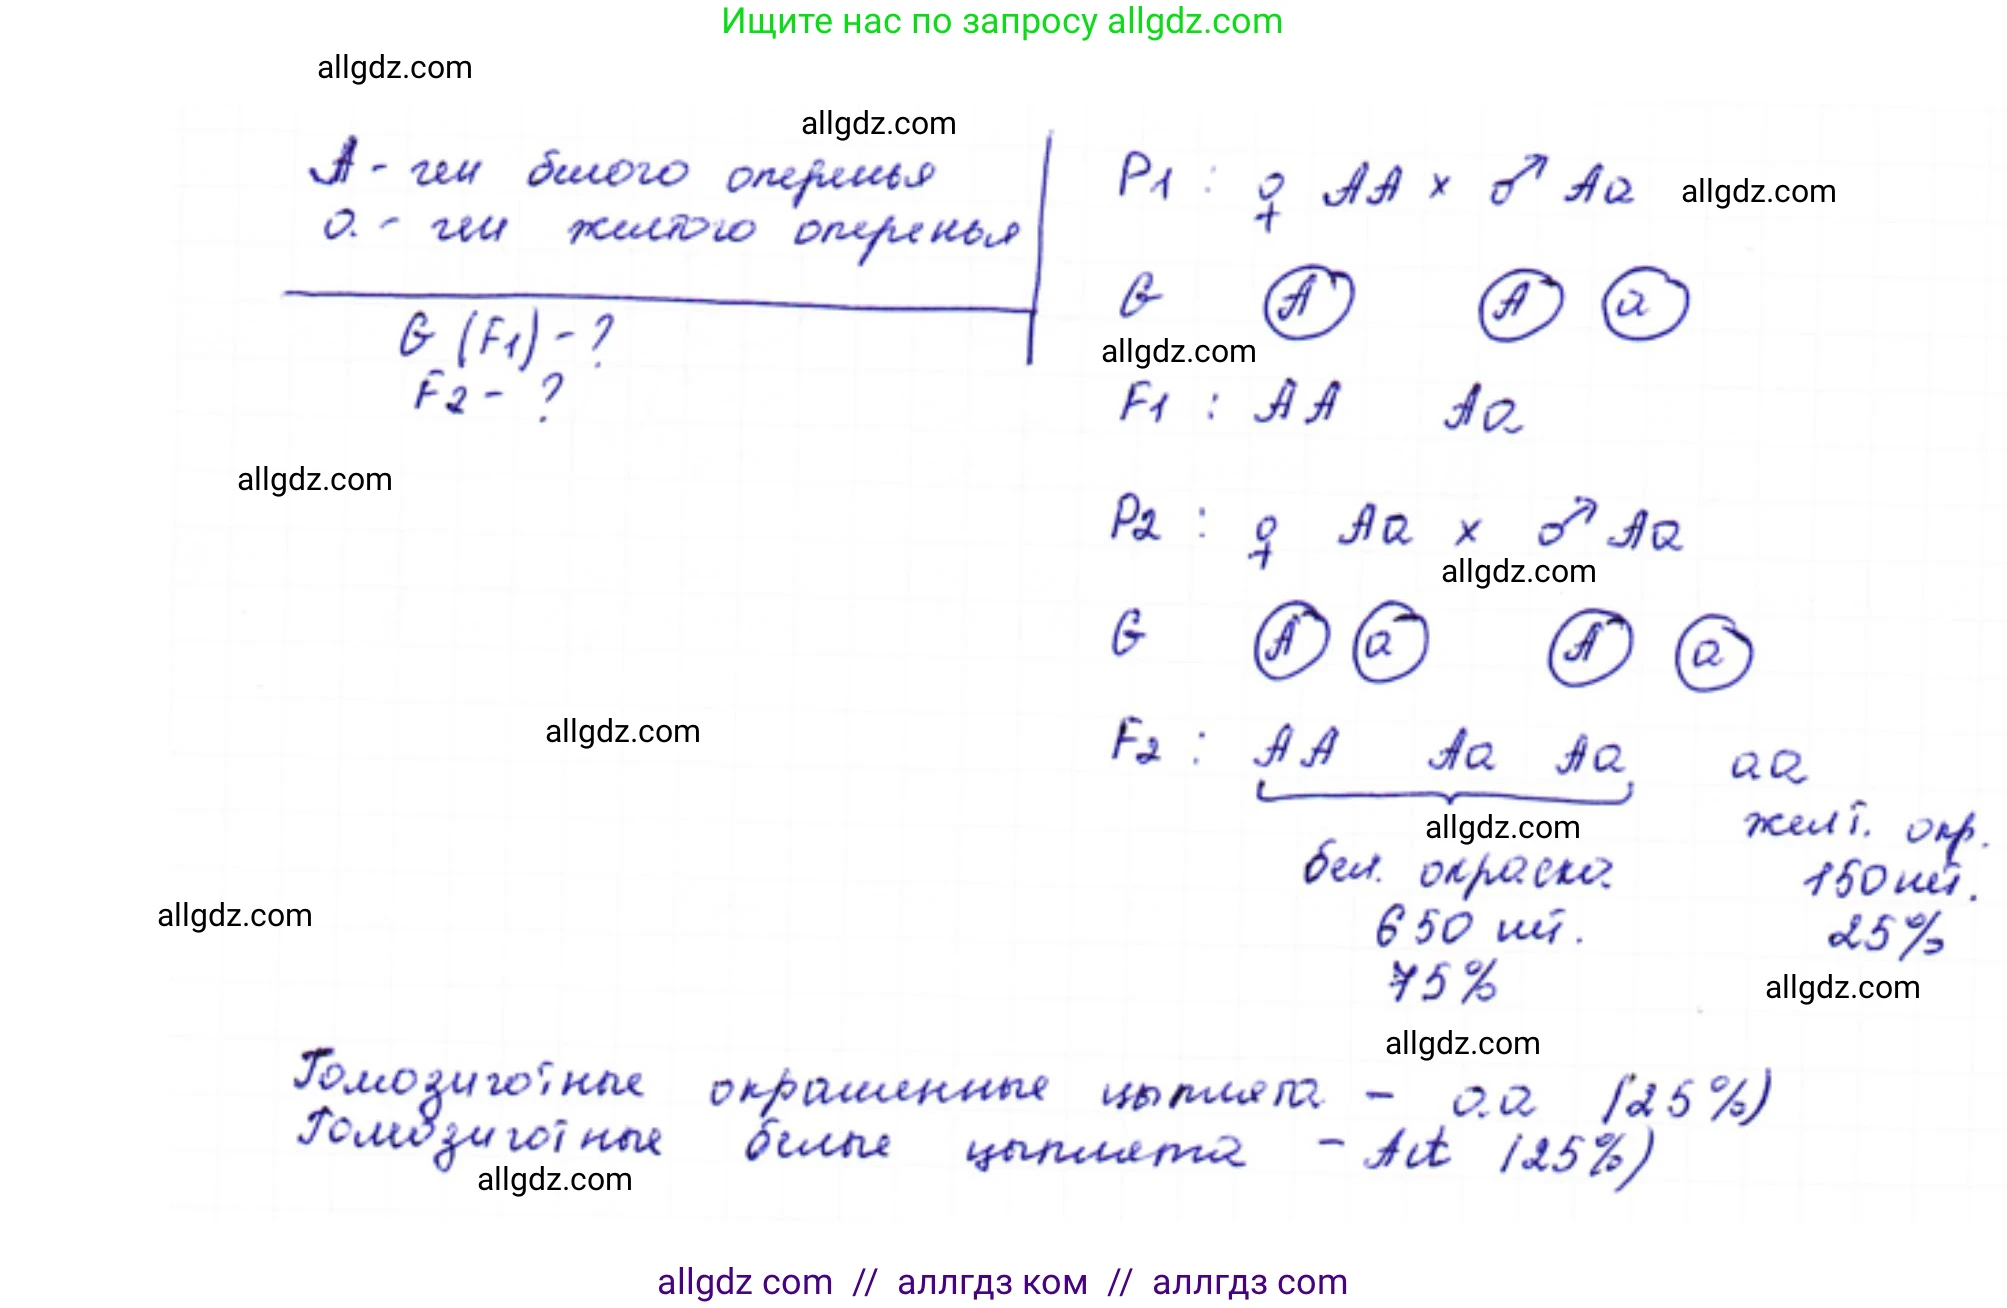 Ищите нас по запросу allgdz.com
allgdz.com
allgdz.com
А - ген белого оперенья
а - ген желтого оперенья
G (F1) - ?
F2 - ?
P1 : ♀ АА × ♂ Аа
allgdz.com
G А А а
allgdz.com
F1 : АА Аа
allgdz.com
P2 : ♀ Аа × ♂ Аа
allgdz.com
G А а А а
allgdz.com
F2 : АА Аа Аа аа
allgdz.com
бел. окраска
650 шт.
75%
желт. окр.
150 шт.
25%
allgdz.com
allgdz.com
allgdz.com
Гомозиготные окрашенные цыплята - аа (25%)
Гомозиготные белые цыплята - АА (25%)
allgdz.com
allgdz com // аллгдз ком // аллгдз com